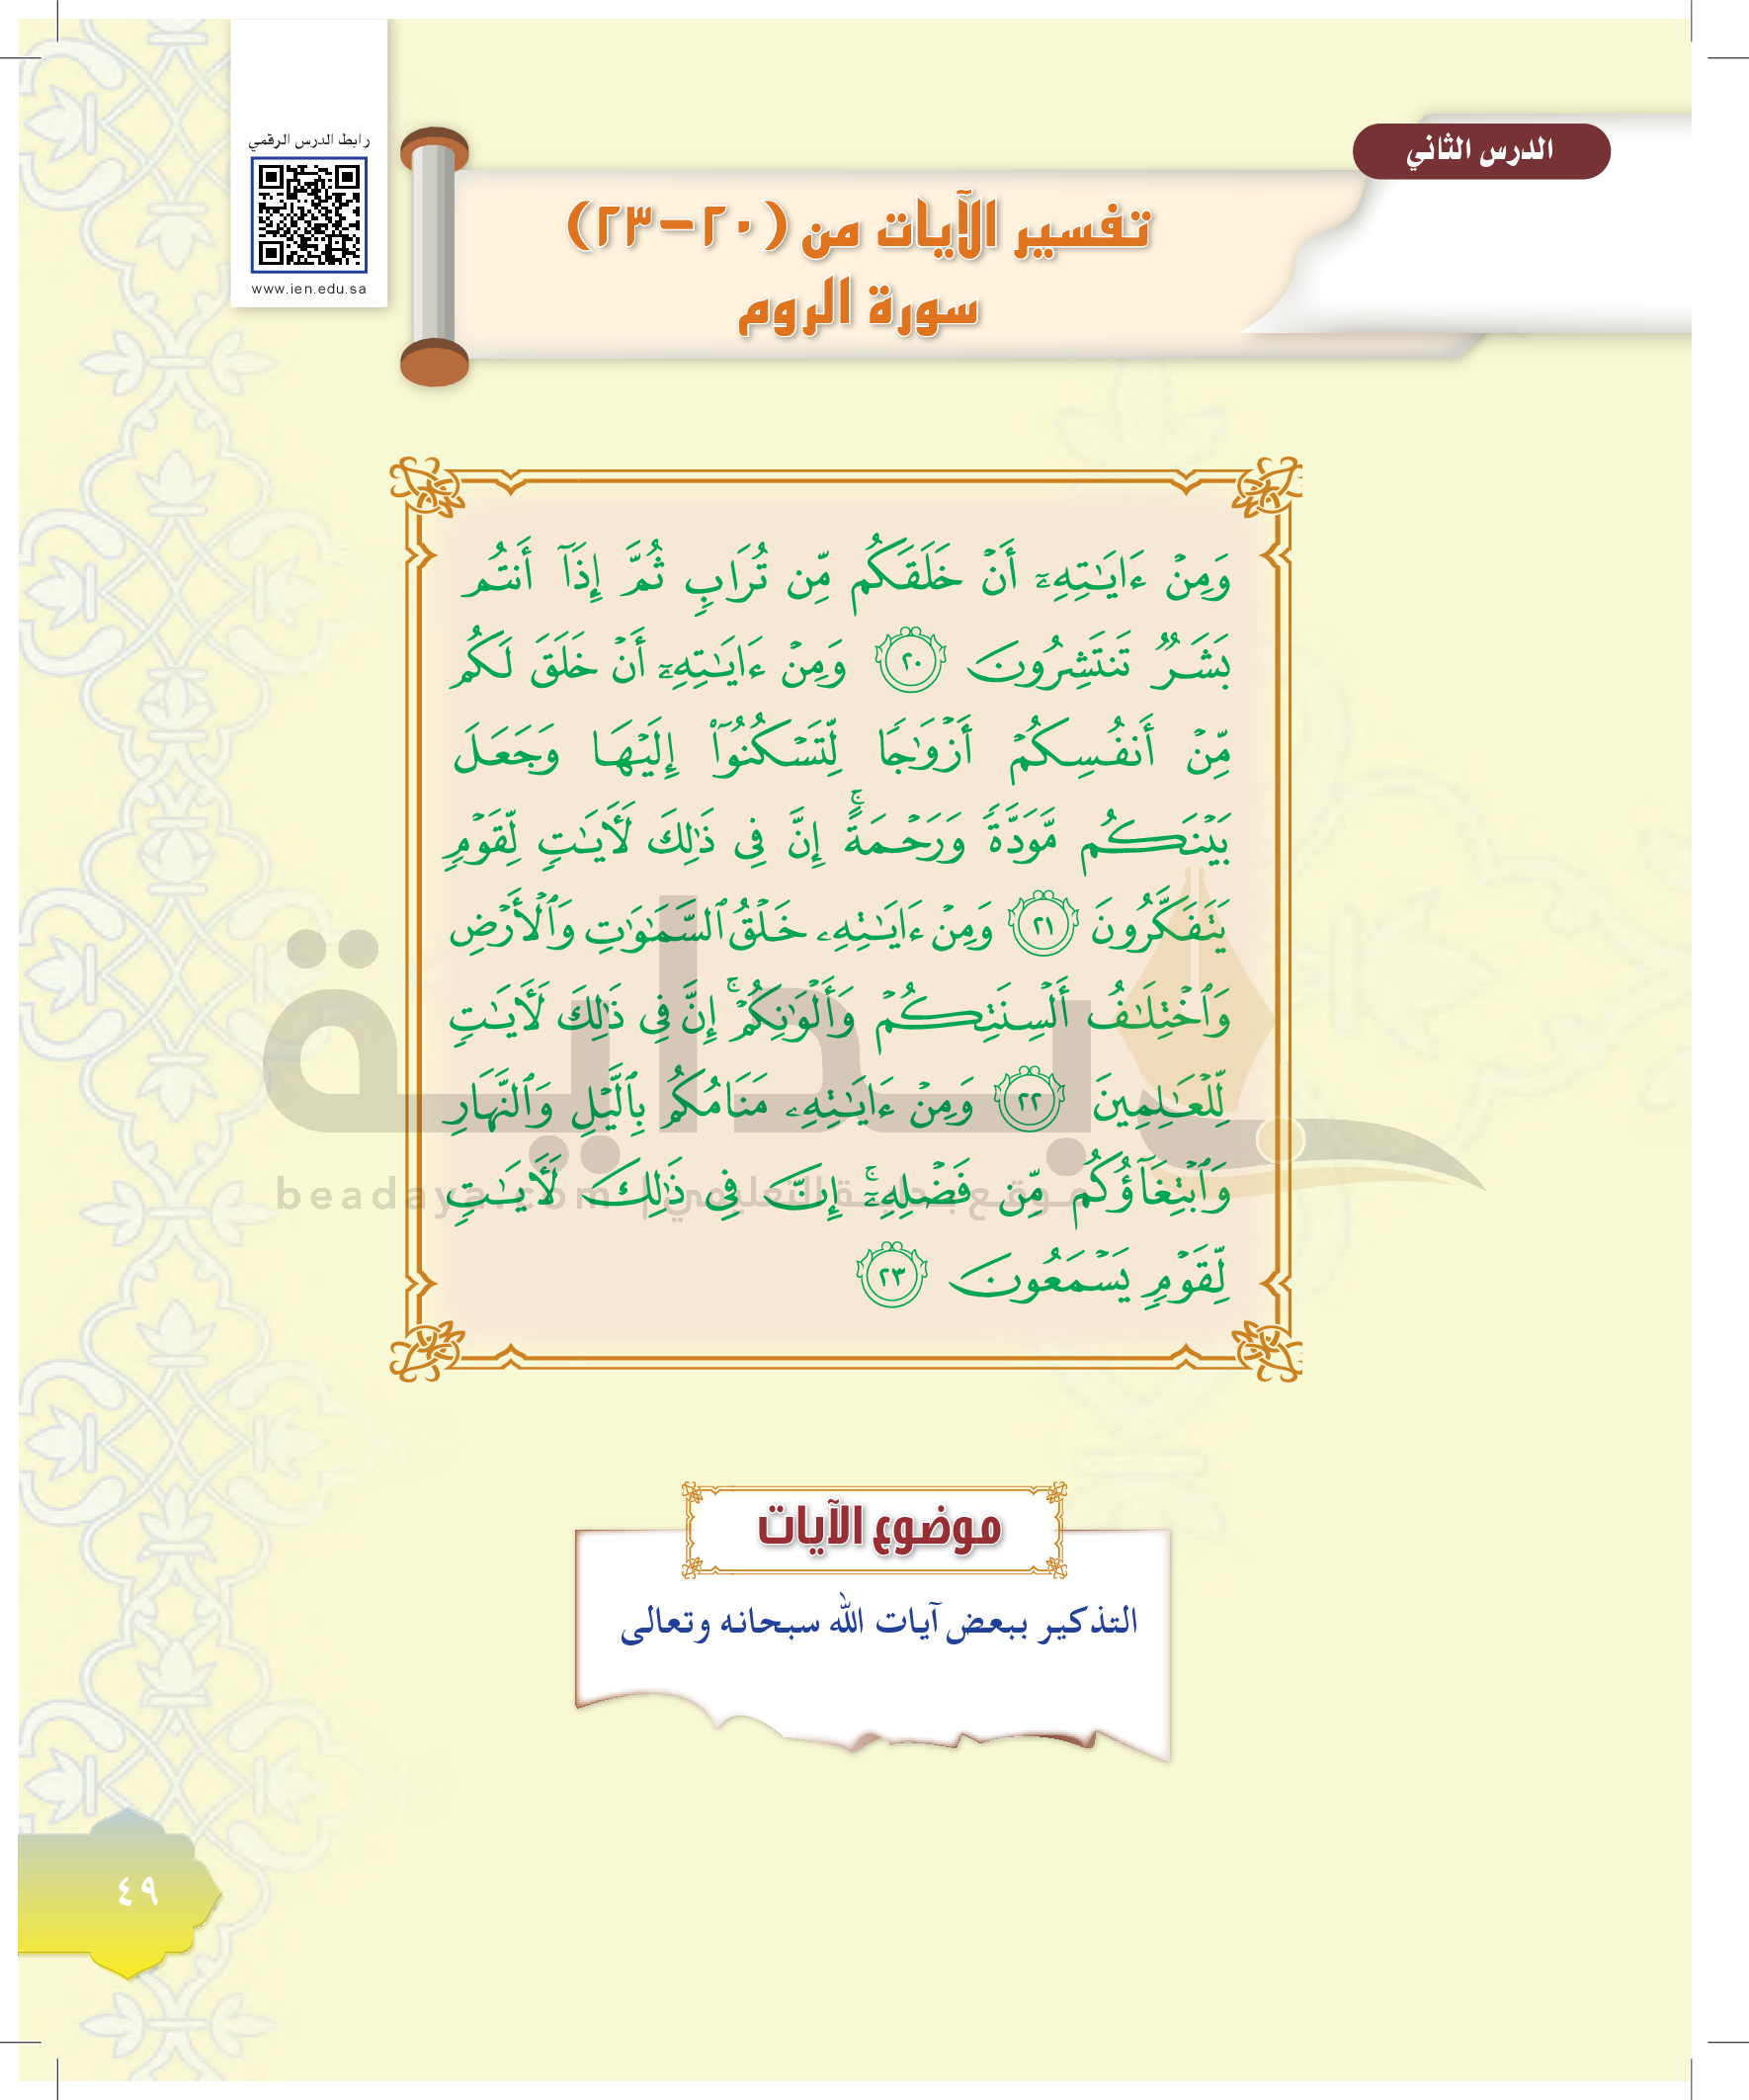 الدرس الثاني
رابط الدرس الرقمي
www.ien.edu.sa
تفسير الآيات من (٢٠-٢٣)
سورة الروم
وَمِنْ ءَايَٰتِهِۦٓ أَنْ خَلَقَكُم مِّن تُرَابٍ ثُمَّ إِذَآ أَنتُم
بَشَرٌ تَنتَشِرُونَ ٢٠ وَمِنْ ءَايَٰتِهِۦٓ أَنْ خَلَقَ لَكُم
مِّنْ أَنفُسِكُمْ أَزْوَٰجًا لِّتَسْكُنُوٓا۟ إِلَيْهَا وَجَعَلَ
بَيْنَكُم مَّوَدَّةً وَرَحْمَةً ۚ إِنَّ فِى ذَٰلِكَ لَأٓيَٰتٍ لِّقَوْمٍ
يَتَفَكَّرُونَ ٢١ وَمِنْ ءَايَٰتِهِۦ خَلْقُ ٱلسَّمَٰوَٰتِ وَٱلْأَرْضِ
وَٱخْتِلَٰفُ أَلْسِنَتِكُمْ وَأَلْوَٰنِكُمْ ۚ إِنَّ فِى ذَٰلِكَ لَأٓيَٰتٍ
لِّلْعَٰلِمِينَ ٢٢ وَمِنْ ءَايَٰتِهِۦ مَنَامُكُم بِٱلَّيْلِ وَٱلنَّهَارِ
وَٱبْتِغَآؤُكُم مِّن فَضْلِهِۦٓ ۚ إِنَّ فِى ذَٰلِكَ لَأٓيَٰتٍ
لِّقَوْمٍ يَسْمَعُونَ ٢٣
بداية
موقع بداية التعليمي | beadaya.com
موضوع الآيات
التذكير ببعض آيات الله سبحانه وتعالى
٤٩